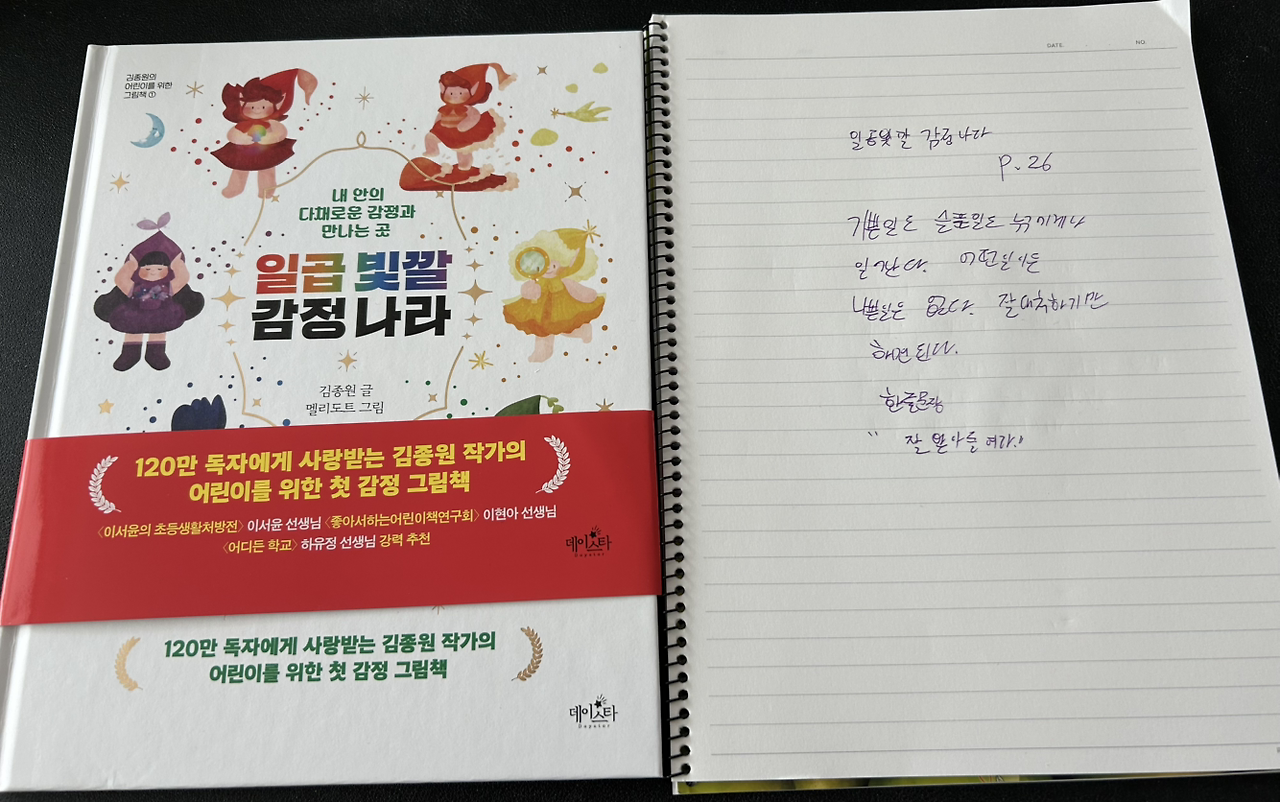 김종원의
어린이를 위한
그림책 ①
내 안의
다채로운 감정과
만나는 곳
일곱 빛깔
감정 나라
김종원 글
멜리도트 그림
120만 독자에게 사랑받는 김종원 작가의
어린이를 위한 첫 감정 그림책
〈이서윤의 초등생활처방전〉 이서윤 선생님 〈좋아서하는어린이책연구회〉 이현아 선생님
〈어디든 학교〉 하유정 선생님 강력 추천
데이스타
Daystar
120만 독자에게 사랑받는 김종원 작가의
어린이를 위한 첫 감정 그림책
데이스타
Daystar
DATE. NO.
일곱빛깔 감정나라
p. 26
기쁜일도 슬픈일도 누구에게나
일어난다. 어떤일이든
나쁜일은 없다. 잘 대처하기만
하면 된다.
한글문장
" 잘 받아들여라!